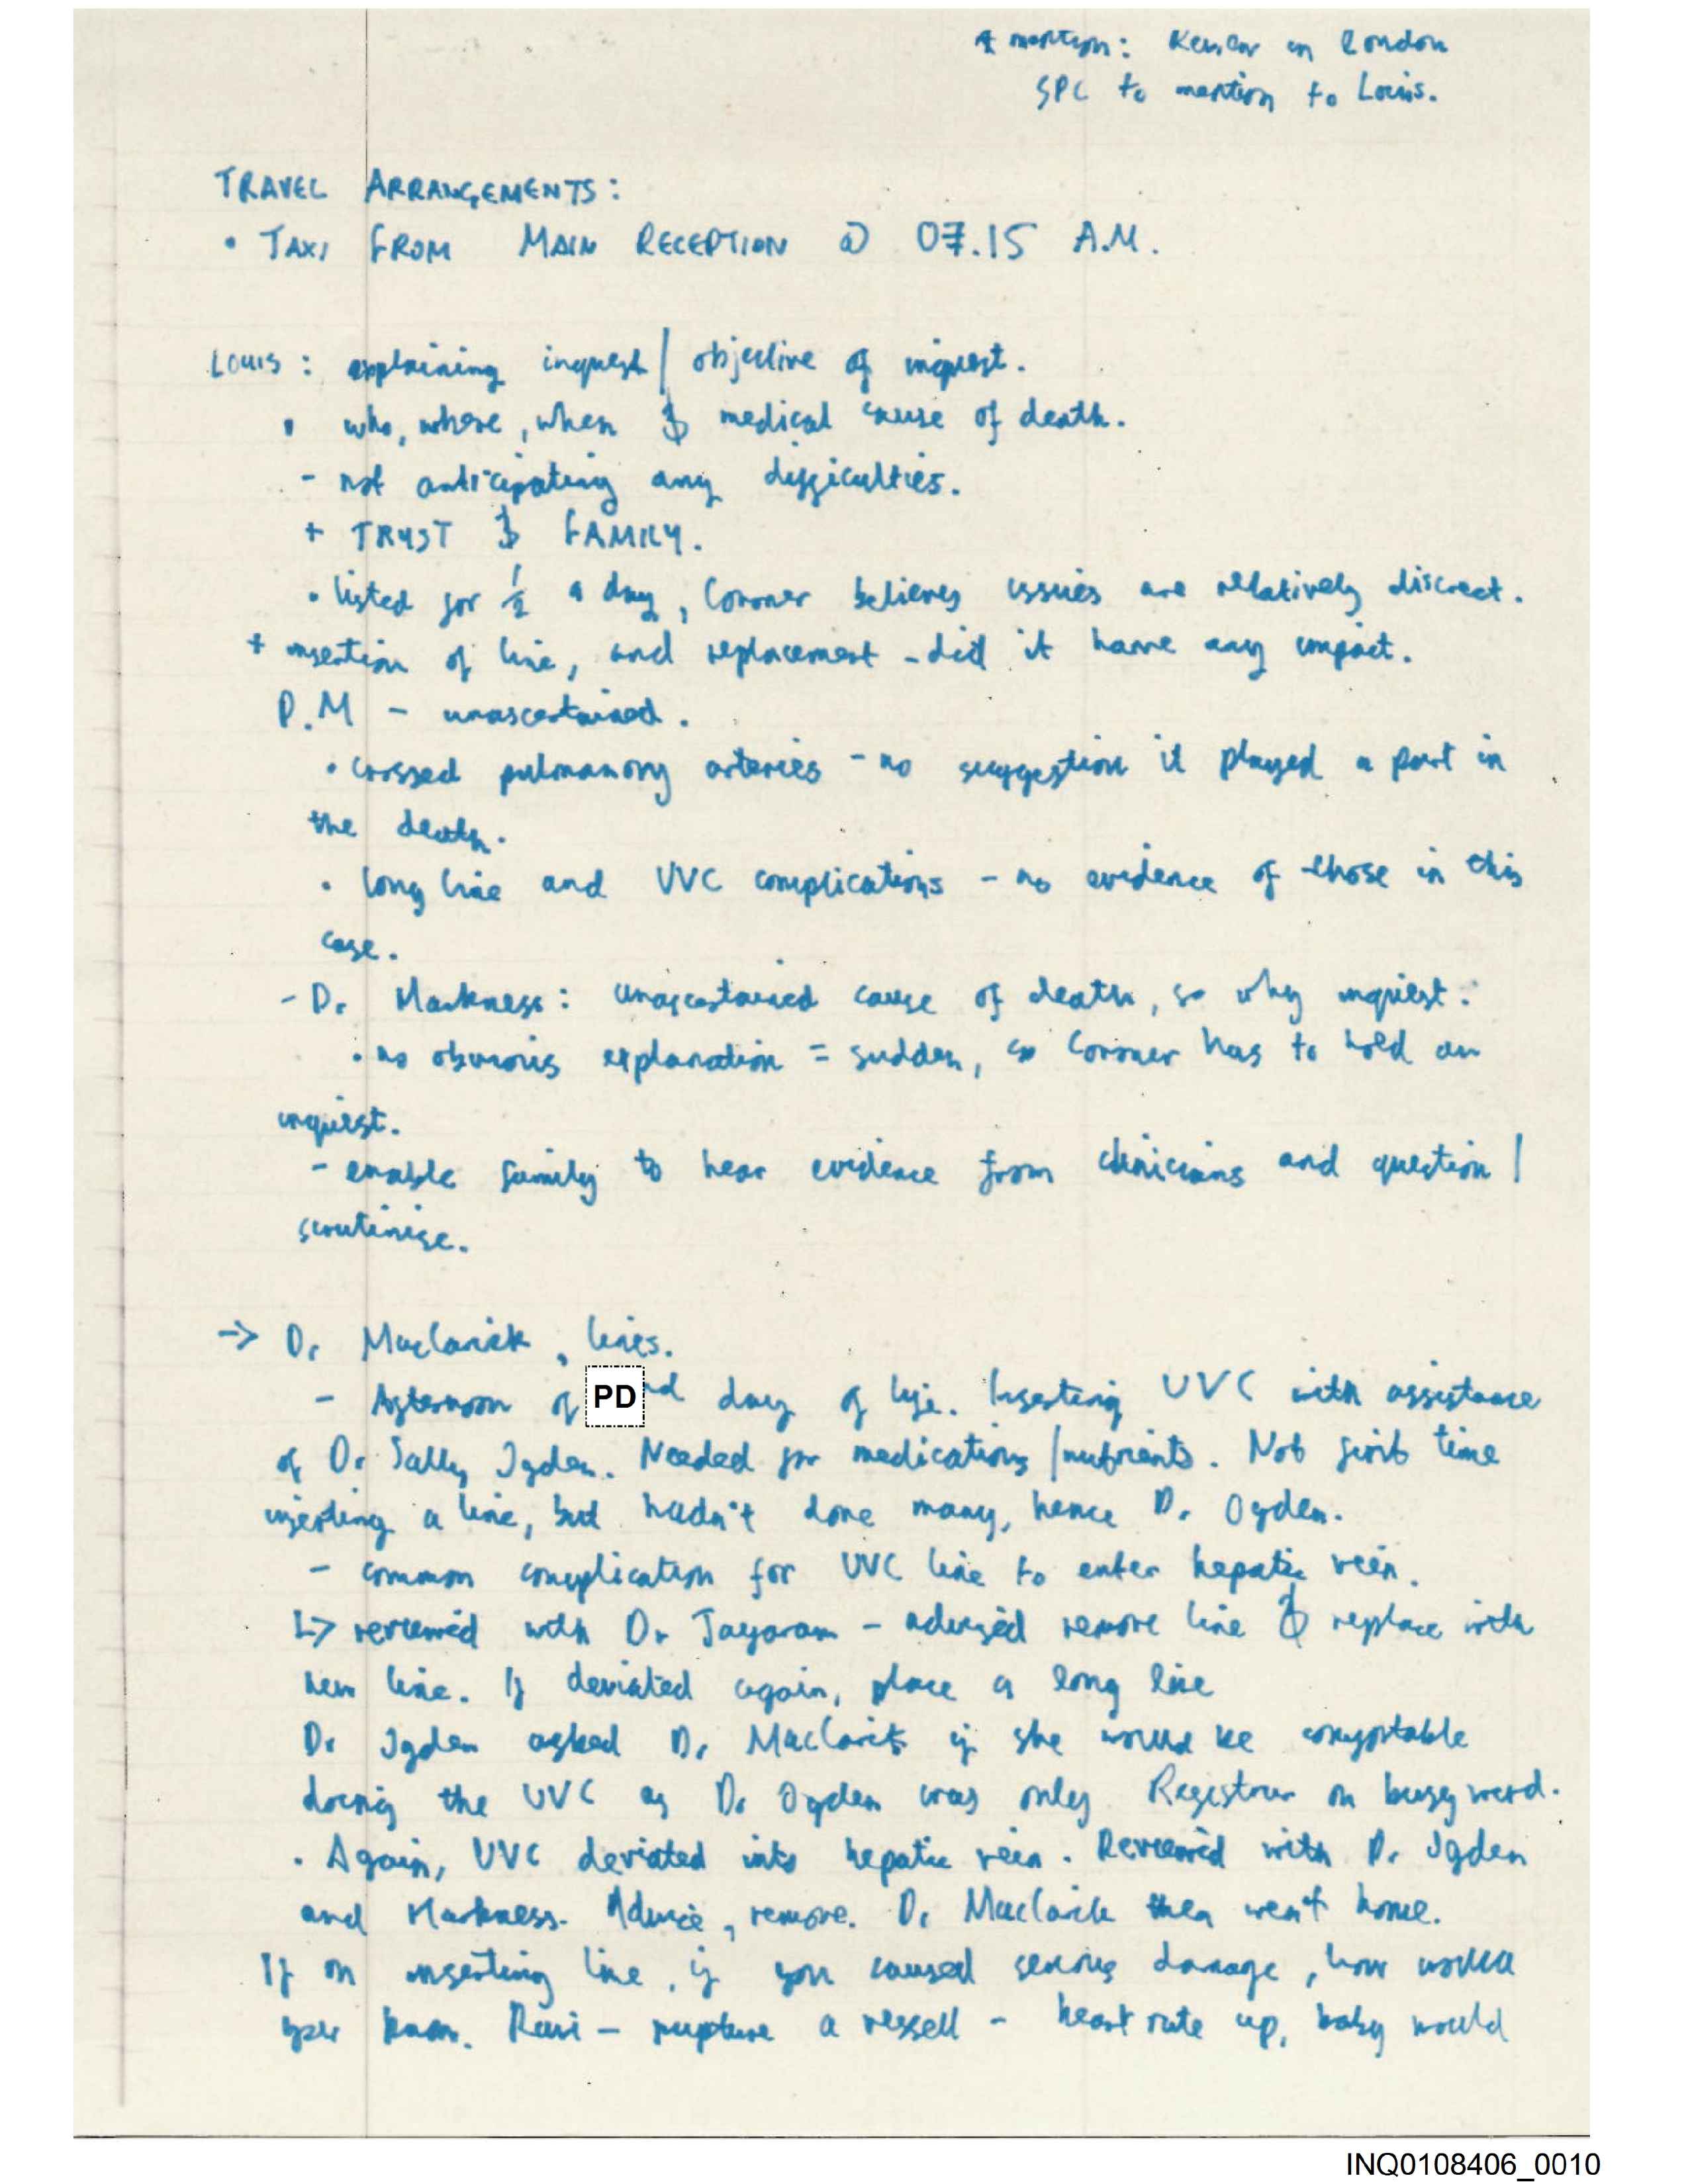 mention: in London
SPC to mention to Louis.
TRAVEL ARRANGEMENTS:
• TAXI FROM MAIN RECEPTION @ 07.15 A.M.
Louis: explaining inquest / objective of inquest.
• who, where, when & medical cause of death.
- not anticipating any difficulties.
+ TRUST & FAMILY.
• listed for ½ a day, Coroner believes issues are relatively discreet.
+ insertion of line, and replacement - did it have any impact.
P.M - unascertained.
• crossed pulmanory arteries - no suggestion it played a part in
the death.
• long line and UVC complications - no evidence of those in this
case.
- Dr Harkness: unascertained cause of death, so why inquest.
• no obvious explanation = sudden, so Coroner has to hold an
inquest.
- enable family to hear evidence from clinicians and question /
scrutinise.
→ Dr Maclarick, lines.
- Afternoon of PD nd day of life. Inserting UVC with assistance
of Dr Sally Ogden. Needed for medications/nutrients. Not first time
inserting a line, but hadn't done many, hence Dr Ogden.
- common complication for UVC line to enter hepatic vein.
↳ reviewed with Dr Jayaram - advised remove line & replace with
new line. If deviated again, place a long line
Dr Ogden asked Dr Maclarick if she would be comfortable
doing the UVC as Dr Ogden was only Registrar on busy ward.
• Again, UVC deviated into hepatic vein. Reviewed with Dr Ogden
and Harkness. Advice, remove. Dr Maclarick then went home.
If on inserting line, if you caused serious damage, how would
you know. Ravi - rupture a vessell - heart rate up, baby would
INQ0108406_0010